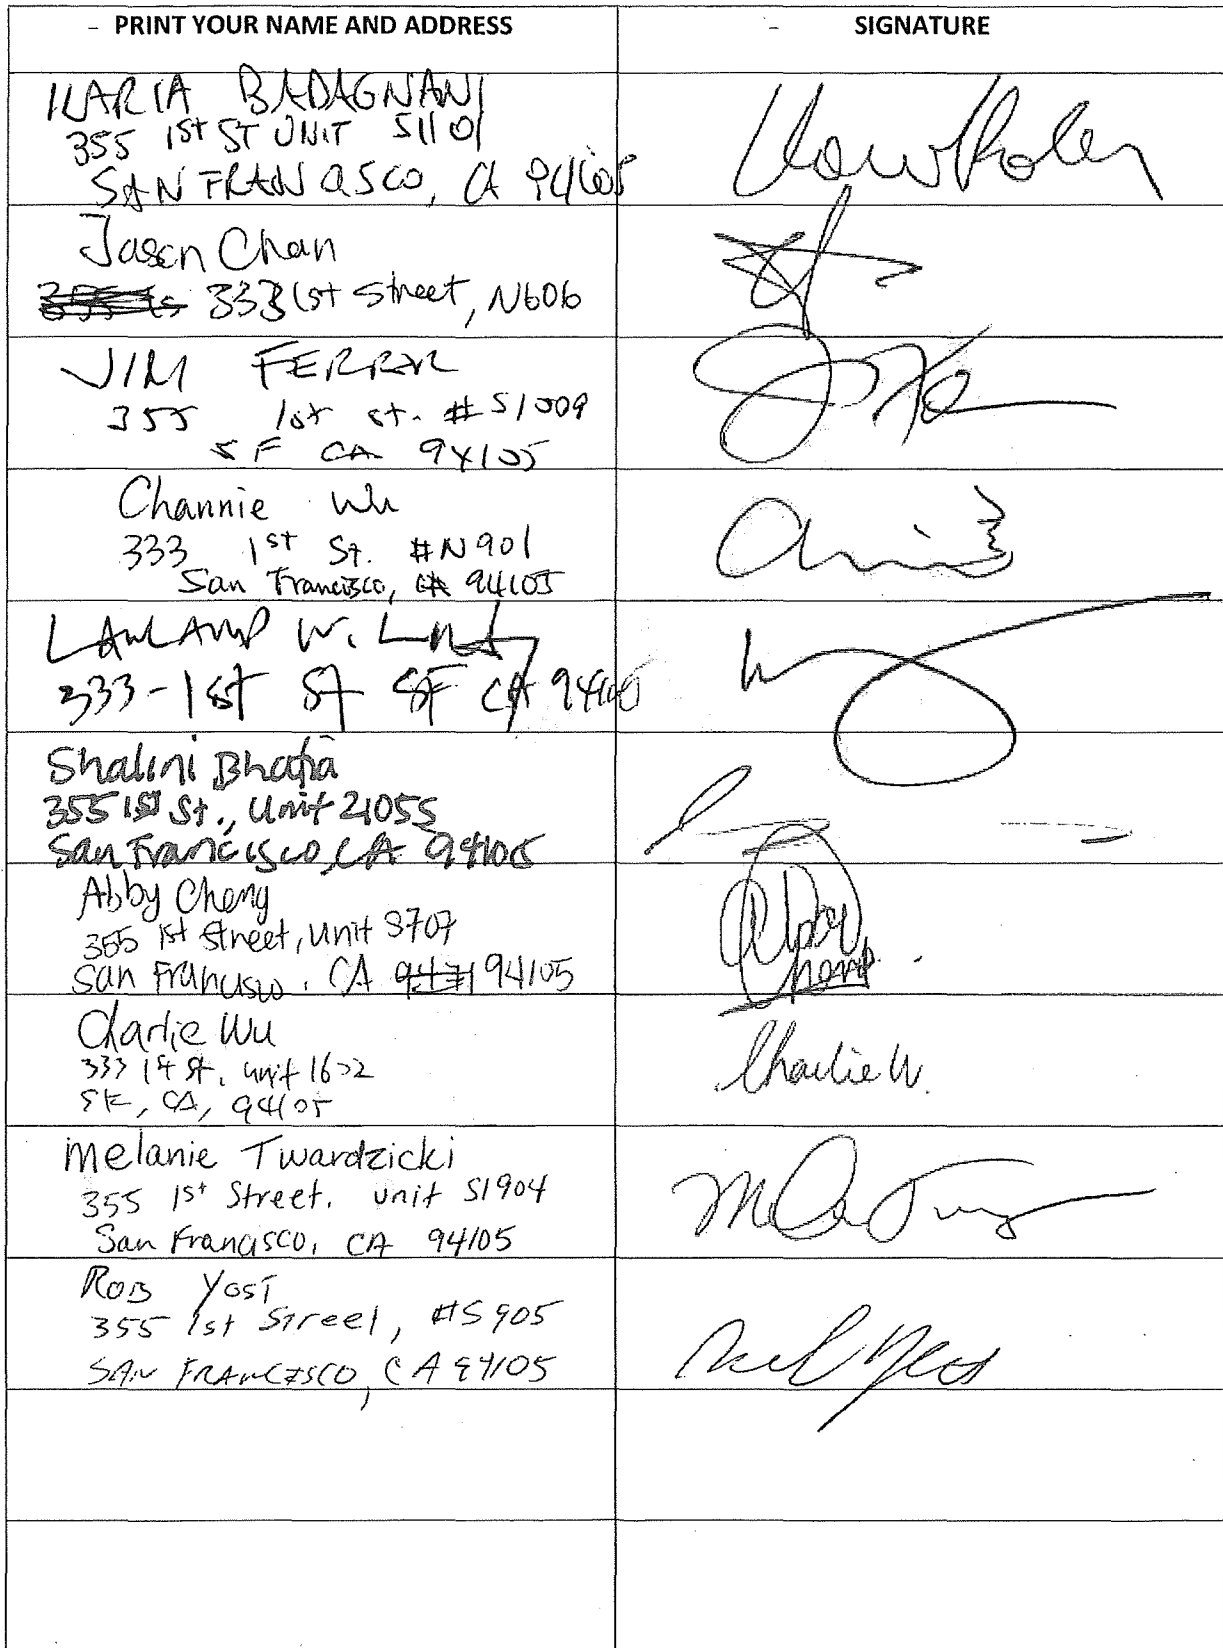 PRINT YOUR NAME AND ADDRESS
SIGNATURE
ILARIA BADAGNANI
355 1st ST UNIT S1101
SAN FRANCISCO, CA 94105
Jason Chan
333 1st Street, N606
JIM FERRAR
355 1st st. #S1009
SF CA 94105
Channie Wu
333 1st St. #N901
San Francisco, CA 94105
W.
333-1st St SF CA 94105
Shalini Bhatia
355 1st St., Unit 2105S
San Francisco, CA 94105
Abby Cheng
355 1st Street, Unit S707
San Francisco, CA 94105
Abby Cheng.
Charlie Wu
333 1st St, unit 1602
SF, CA, 94105
Charlie W.
Melanie Twardzicki
355 1st Street. unit S1904
San Francisco, CA 94105
ROB YOST
355 1st Street, #S905
SAN FRANCISCO, CA 94105